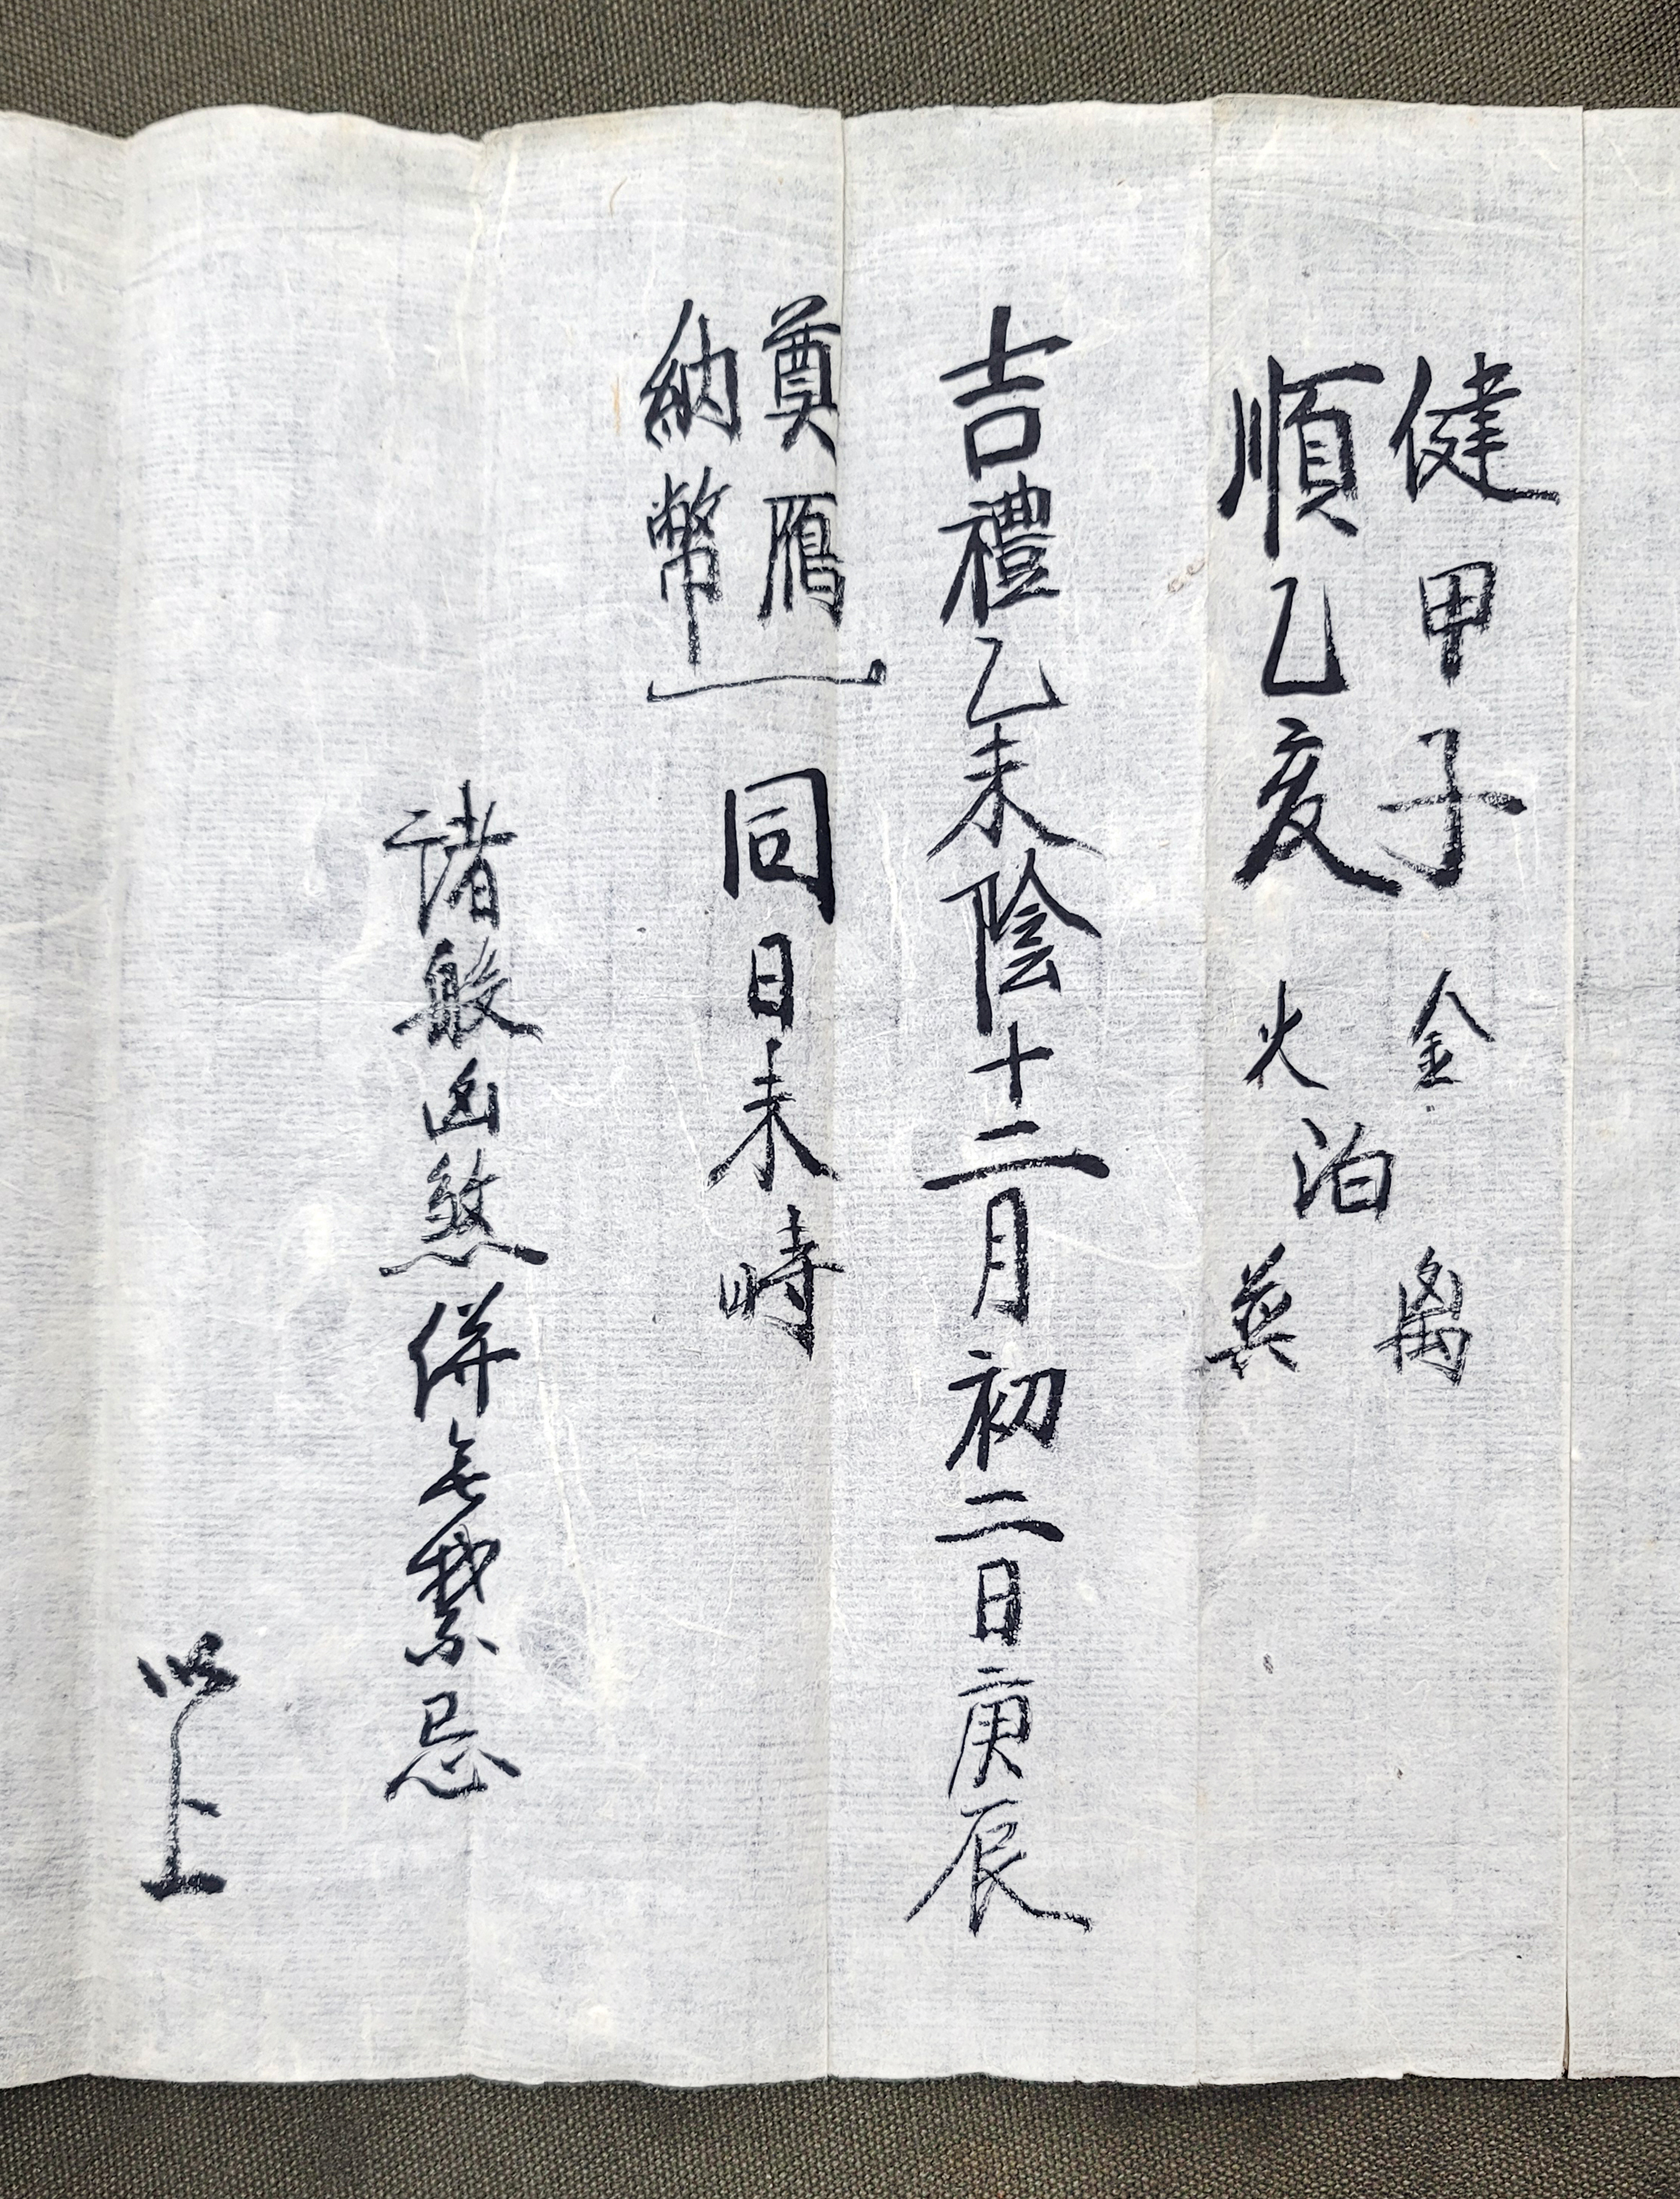 健甲子 金 离
泊
順乙亥 火 巽
吉禮乙未陰十二月初二日庚辰
奠鴈
納幣
同日未時
諸般凶煞併无禁忌
以上